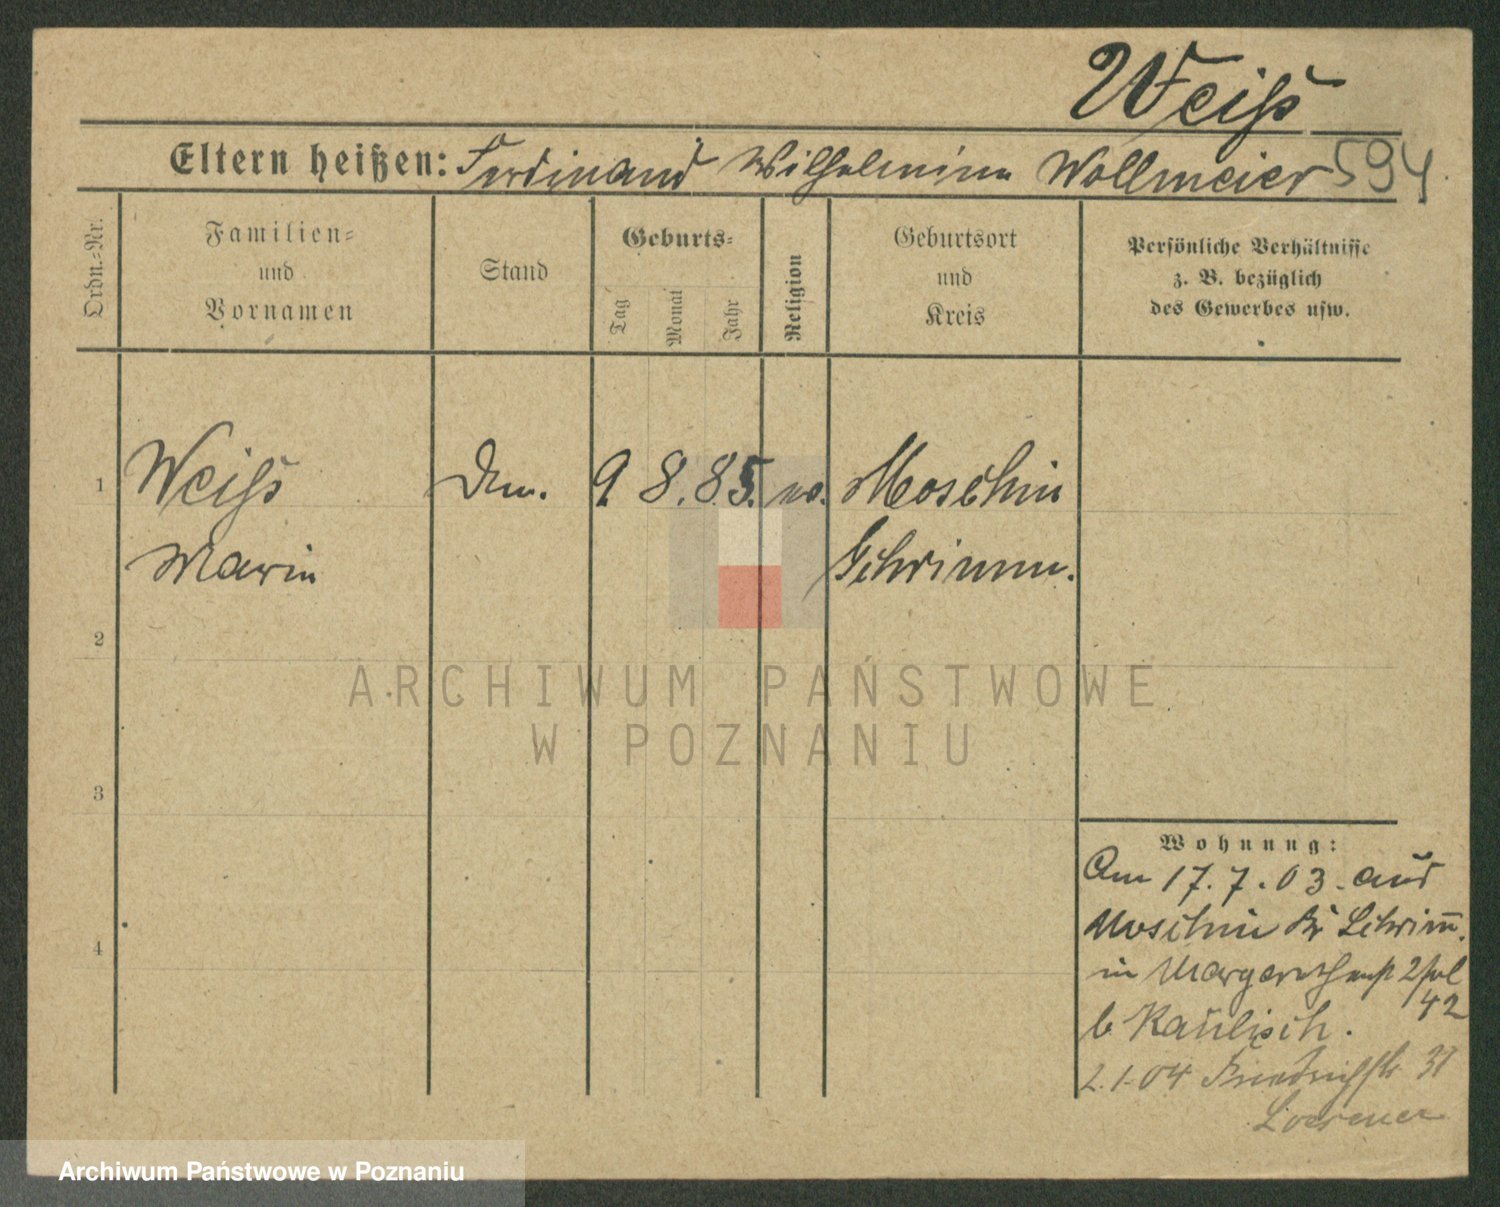 Weiß
Eltern heißen: Ferdinand Wilhelmine Wollmeier 594
Ordn.-Nr.
Familien-
und
Vornamen
Stand
Geburts-
Tag
Monat
Jahr
Religion
Geburtsort
und
Kreis
Persönliche Verhältnisse
z. B. bezüglich
des Gewerbes usw.
1 Weiß 9. 8. 85. ev. Moschin
Marie Schrimm.
2
ARCHIWUM PAŃSTWOWE
W POZNANIU
3
Wohnung:
Am 17.7.03. aus
4 Moschin Kr Schrim̅.
in
42
b Kaulisch.
2.1.04 Friedrichstr. 31
Archiwum Państwowe w Poznaniu